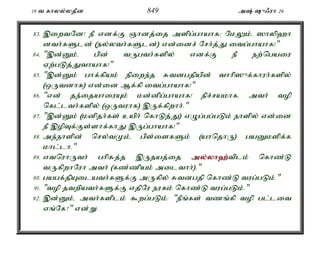 19 வ காலல்லதீன 849 அஷ் ஷுஃரா 26
83. இறைவனே! நீ எனக்கு ஞானத்தை அளிப்பாயாக; மேலும், ஸாலிஹா
னவர்களுடன் (நல்லவர்களுடன்) என்னைச் சேர்த்து வைப்பாயாக!"
84. "இன்னும், பின் வருபவர்களில் எனக்கு நீ நற்பெயரை
ஏற்படுத்துவாயாக!"
85. "இன்னும் பாக்கியம் நிறைந்த சுவனபதியின் வாரிஸுக்காரர்களில்
(ஒருவனாக) என்னை ஆக்கி வைப்பாயாக!"
86. "என் தந்தையாரையும் மன்னிப்பாயாக! நிச்சயமாக, அவர் வழி
கெட்டவர்களில் (ஒருவராக) இருக்கிறார்."
87. "இன்னும் (மனிதர்கள் உயிர் கொடுத்து) எழுப்பப்படும் நாளில் என்னை
நீ இழிவுக்குள்ளாக்காது இருப்பாயாக!"
88. அந்நாளின் செல்வமும், பிள்ளைகளும் (யாதொரு) பயனுமளிக்க
மாட்டா."
89. எவரொருவர் பரிசுத்த இருதயத்தை அல்லாஹ்விடம் கொண்டு
வருகிறாரோ அவர் (கண்ணியம் அடைவார்)."
90. பயபக்தியுடையவர்களுக்கு அருகில் சுவனபதி கொண்டு வரப்படும்."
91. "வழி தவறியவர்களுக்கு எதிரே நரகம் கொண்டு வரப்படும்."
92. இன்னும், அவர்களிடம் கூறப்படும்: "நீங்கள் வணங்கி வழி பட்டவை
எங்கே?" என்று.